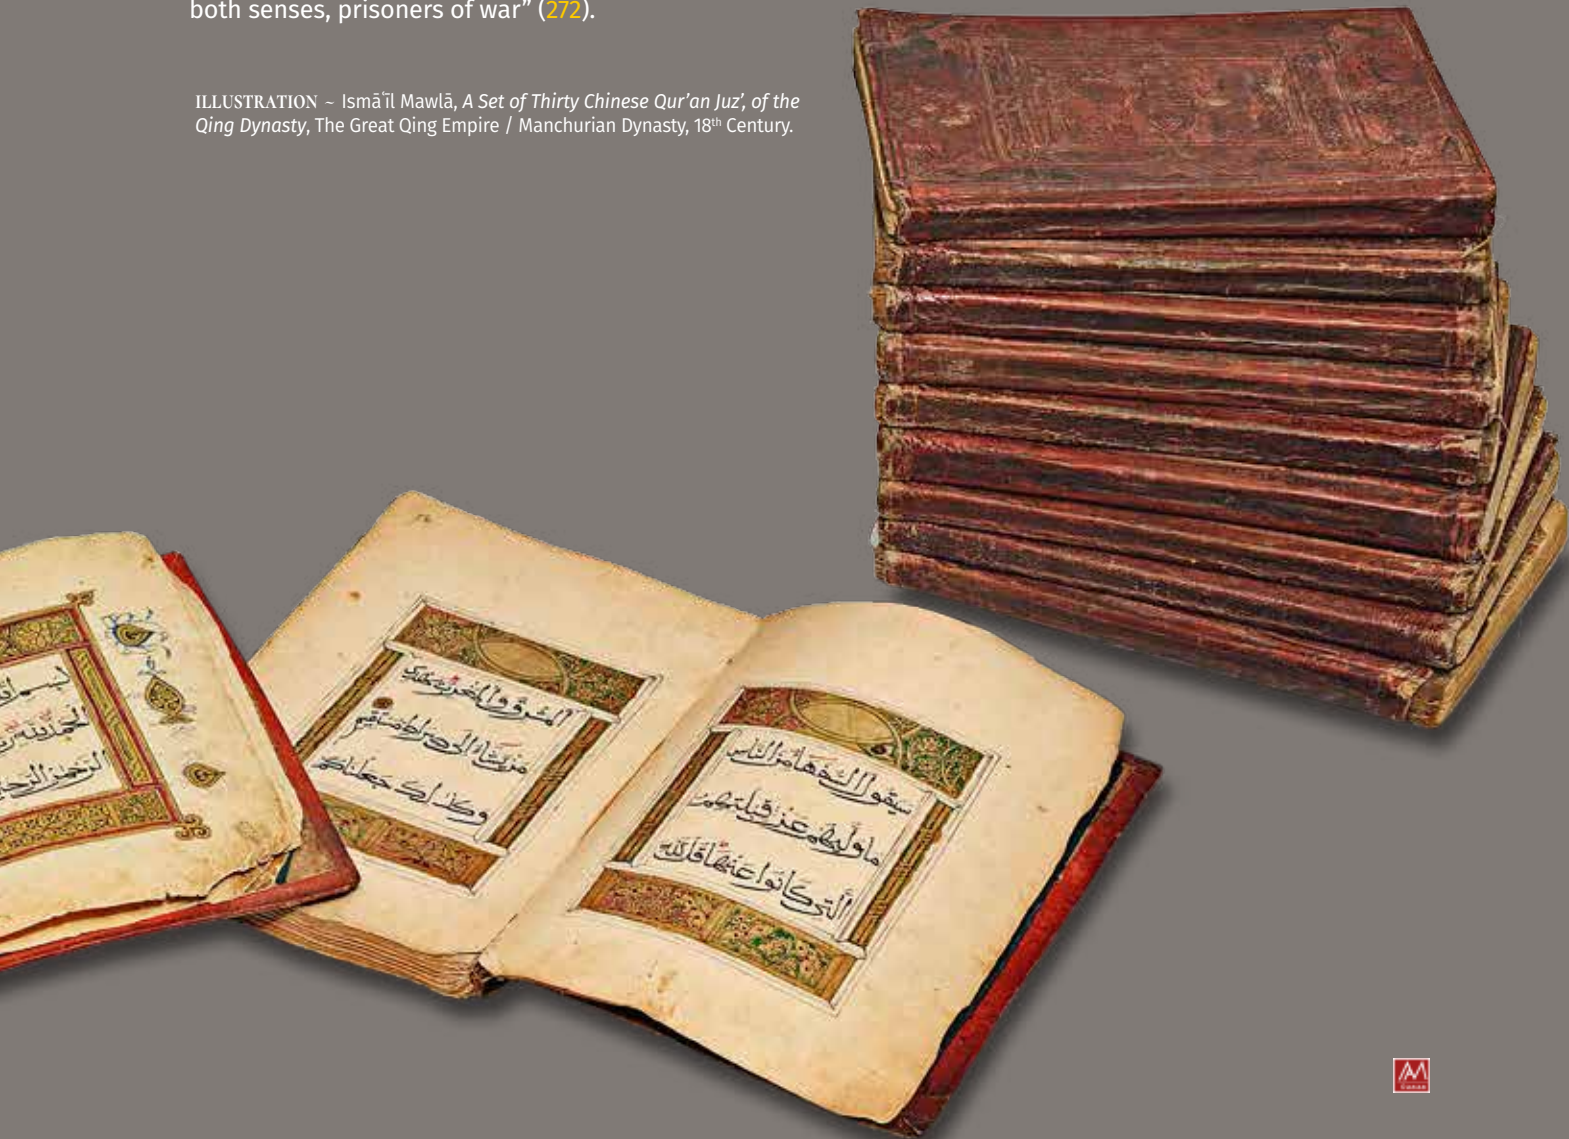 both senses, prisoners of war” (272).
ILLUSTRATION ~ Ismāʿīl Mawlā, A Set of Thirty Chinese Qur’an Juz’, of the
Qing Dynasty, The Great Qing Empire / Manchurian Dynasty, 18th Century.
سيقول السفهاء من الناس
ما وليهم عن قبلتهم
التي كانوا عليها قل لله
المشرق والمغرب يهدي
من يشاء الى صراط مستقيم
وكذلك جعلناكم
بسم
الحمد لله
الرحمن